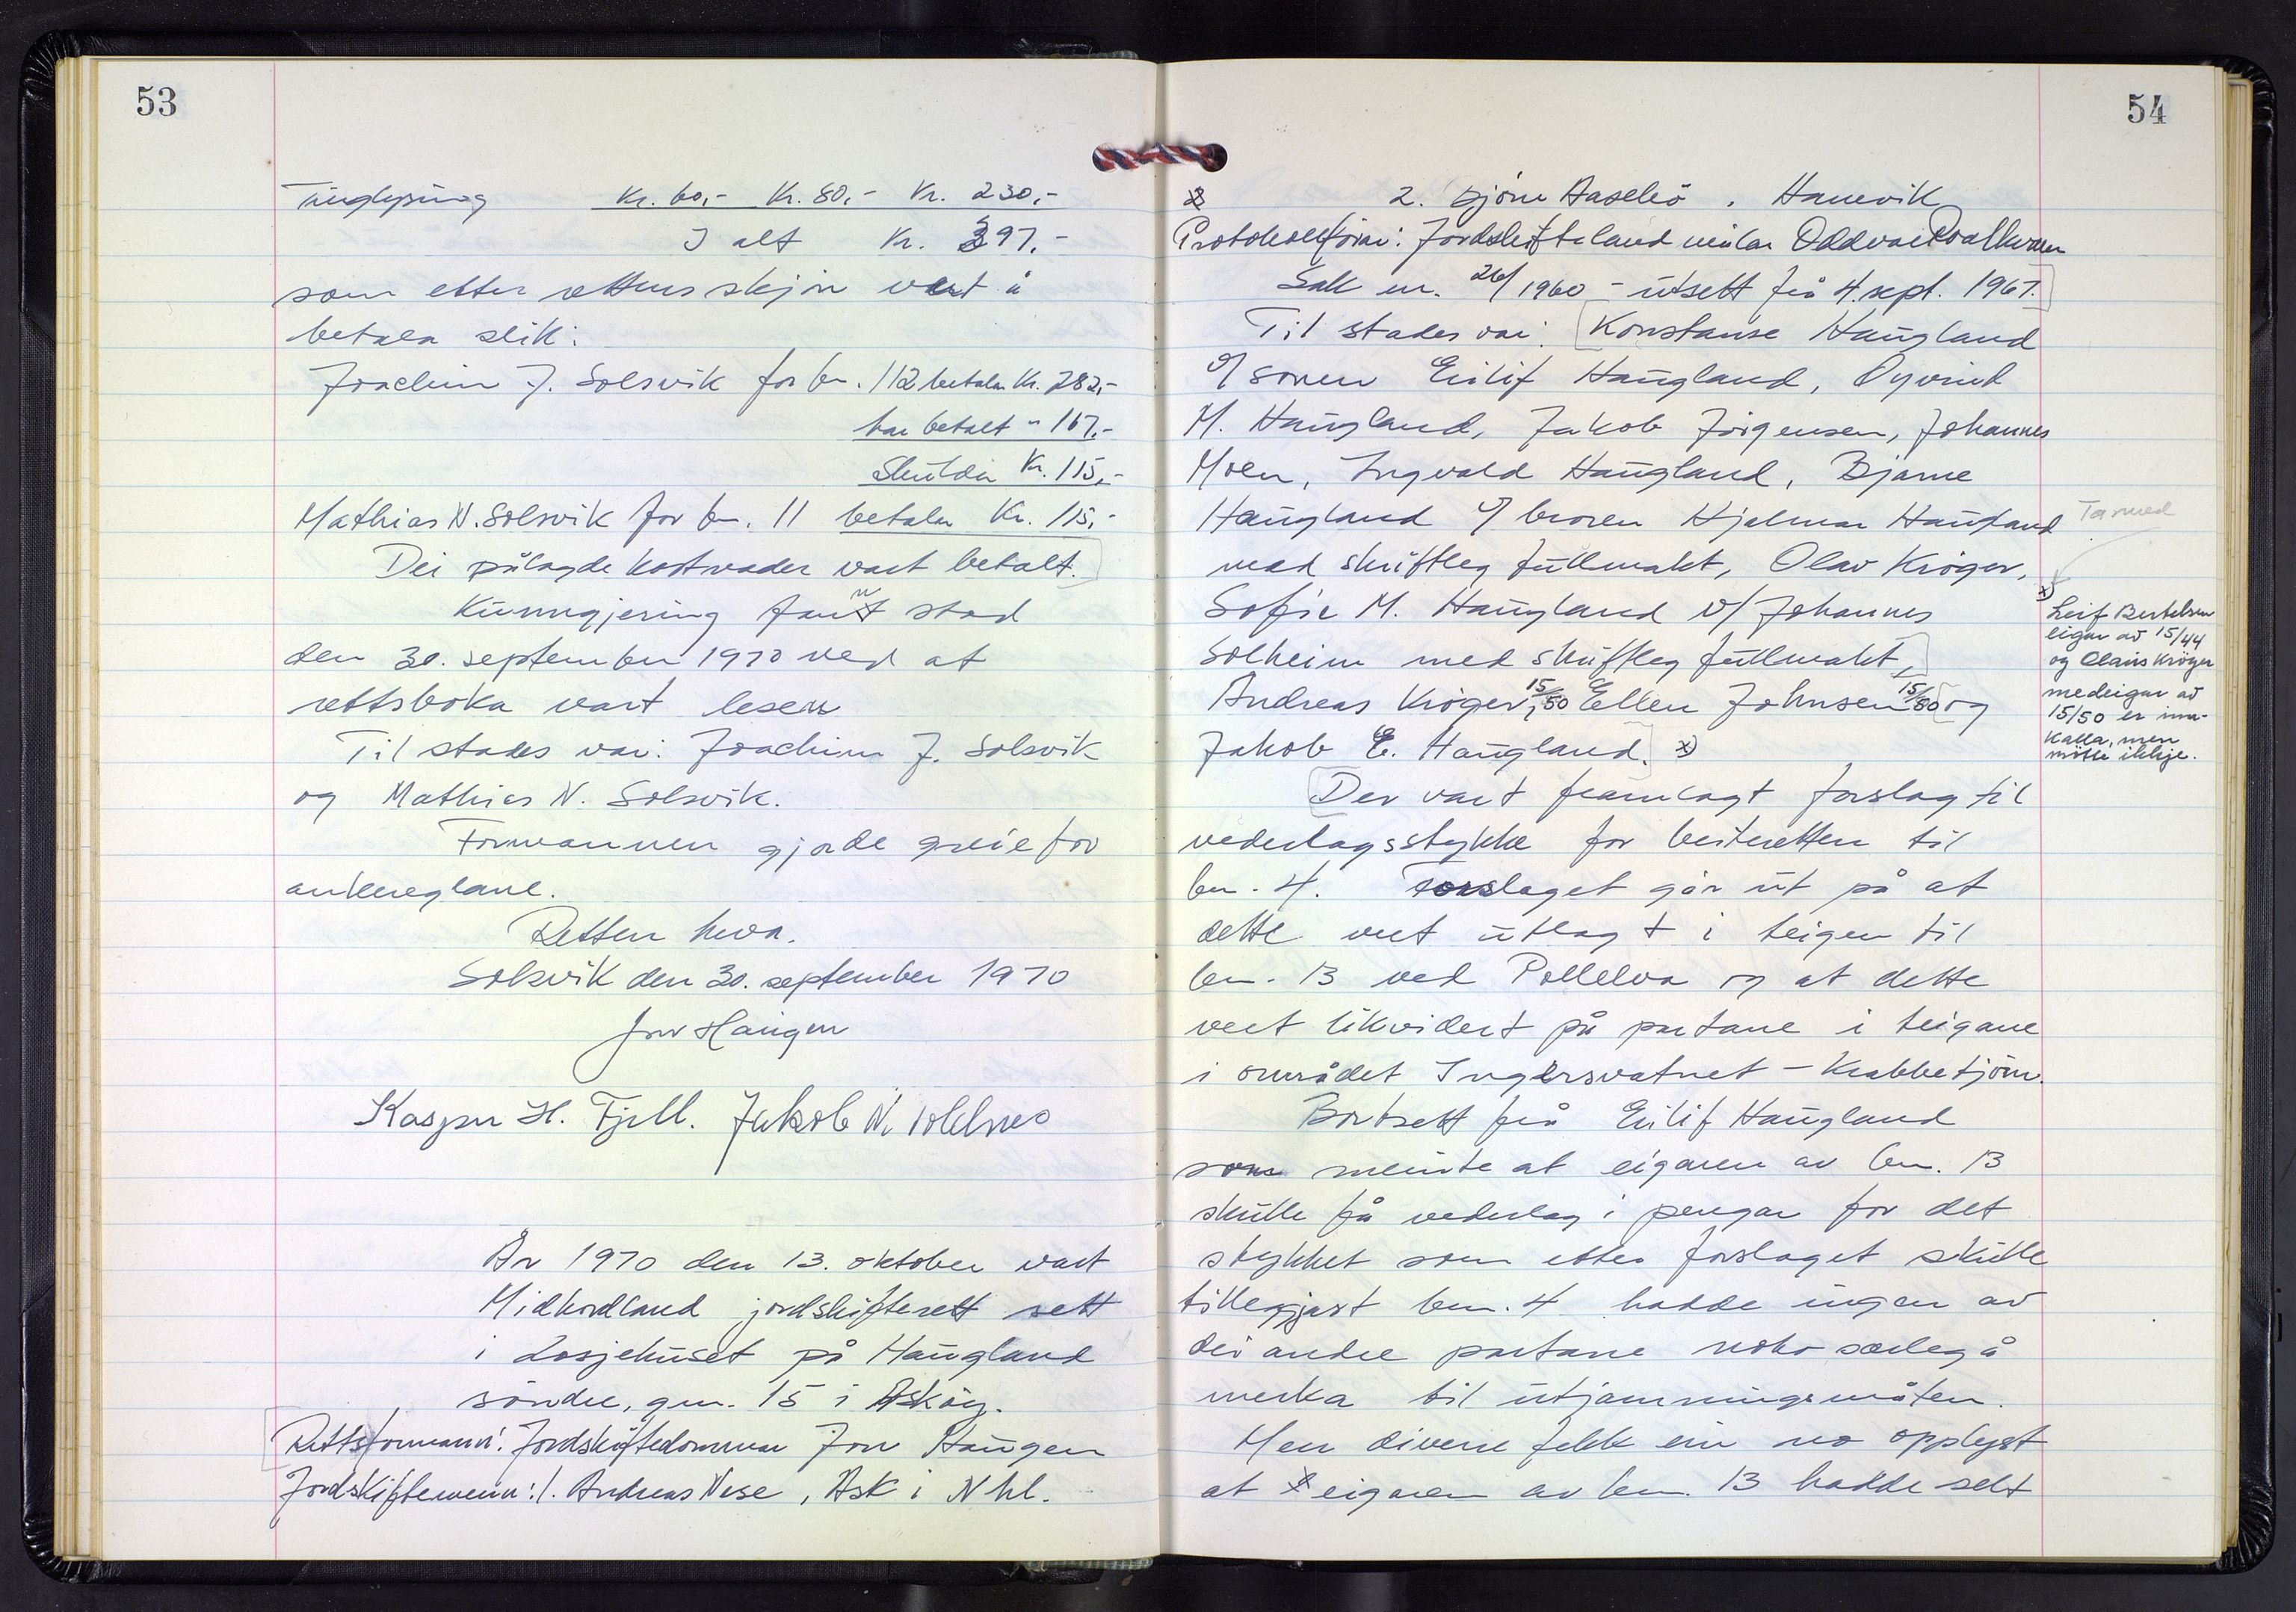 53
Tinglysing Kr. 60,- Kr. 80,- Kr. 230,-
I alt Kr. 397,-
som etter rettens skjön vert å
betala slik:
Joachim J. Solsvik for bn. 112 betalar Kr. 282,-
har betalt " 167,-
Skuldar Kr. 115,-
Mathias N. Solsvik for bn. 11 betalar Kr. 115,-
Dei pålagde kostnader vart betalt.
Kunngjering fant stad
den 30. september 1970 ved at
rettsboka vart lesen
Til stades var: Joachim J. Solsvik
og Mathias N. Solsvik.
Formannen gjorde greie for
ankereglane.
Retten heva.
Solsvik den 30. september 1970
Jon Haugen
Kasper H. Fjell. Jakob N.
År 1970 den 13. oktober vart
Midhordland jordskifterett sett
i Losjehuset på Haugland
söndre, gnr. 15 i Asköy.
Rettsformann: Jordskiftedommar Jon Haugen
Jordskiftemenn: 1. Andreas Nese, Ask i Nhl.
54
2. Björn Aaselrö, Hanevik
Protokollförar: Jordskiftelandmålar Oddvar
Sak nr. 26/1960 - utsett frå 4. sept. 1967.
Til stades var: Konstanse Haugland
v/ sonen Eilif Haugland, Öyvind
M. Haugland, Jakob Jörgensen, Johannes
Moen, Ingvald Haugland, Bjarne
Haugland v/ broren Hjalmar Haugland
med skriftleg fullmakt, Olav Kröger,
Sofie M. Haugland v/ Johannes
Solheim med skriftleg fullmakt,
Andreas Kröger, 15/50 Ellen Johnsen 15/80 og
Jakob E. Haugland. x)
Ta med
x) Leif Bertelsen
eigar av 15/44
og Claus Kröger
medeigar av
15/50 er inn-
kalla, men
mötte ikkje.
Der vart framlagt forslag til
vederlagsstykke for beiteretten til
bn. 4. Forslaget går ut på at
dette vert utlagt i teigen til
bn. 13 ved Pollelva og at dette
vert likvidert på partane i teigane
i området Ingersvatnet - Krabbetjörn.
Bortsett frå Eilif Haugland
som meinte at eigaren av bn. 13
skulle få vederlag i pengar for det
stykket som etter forslaget skulle
tilleggjast bn. 4 hadde ingen av
dei andre partane noko særleg å
merka til utjamningsmåten.
Men diverre fekk ein no opplyst
at eigaren av bn. 13 hadde selt